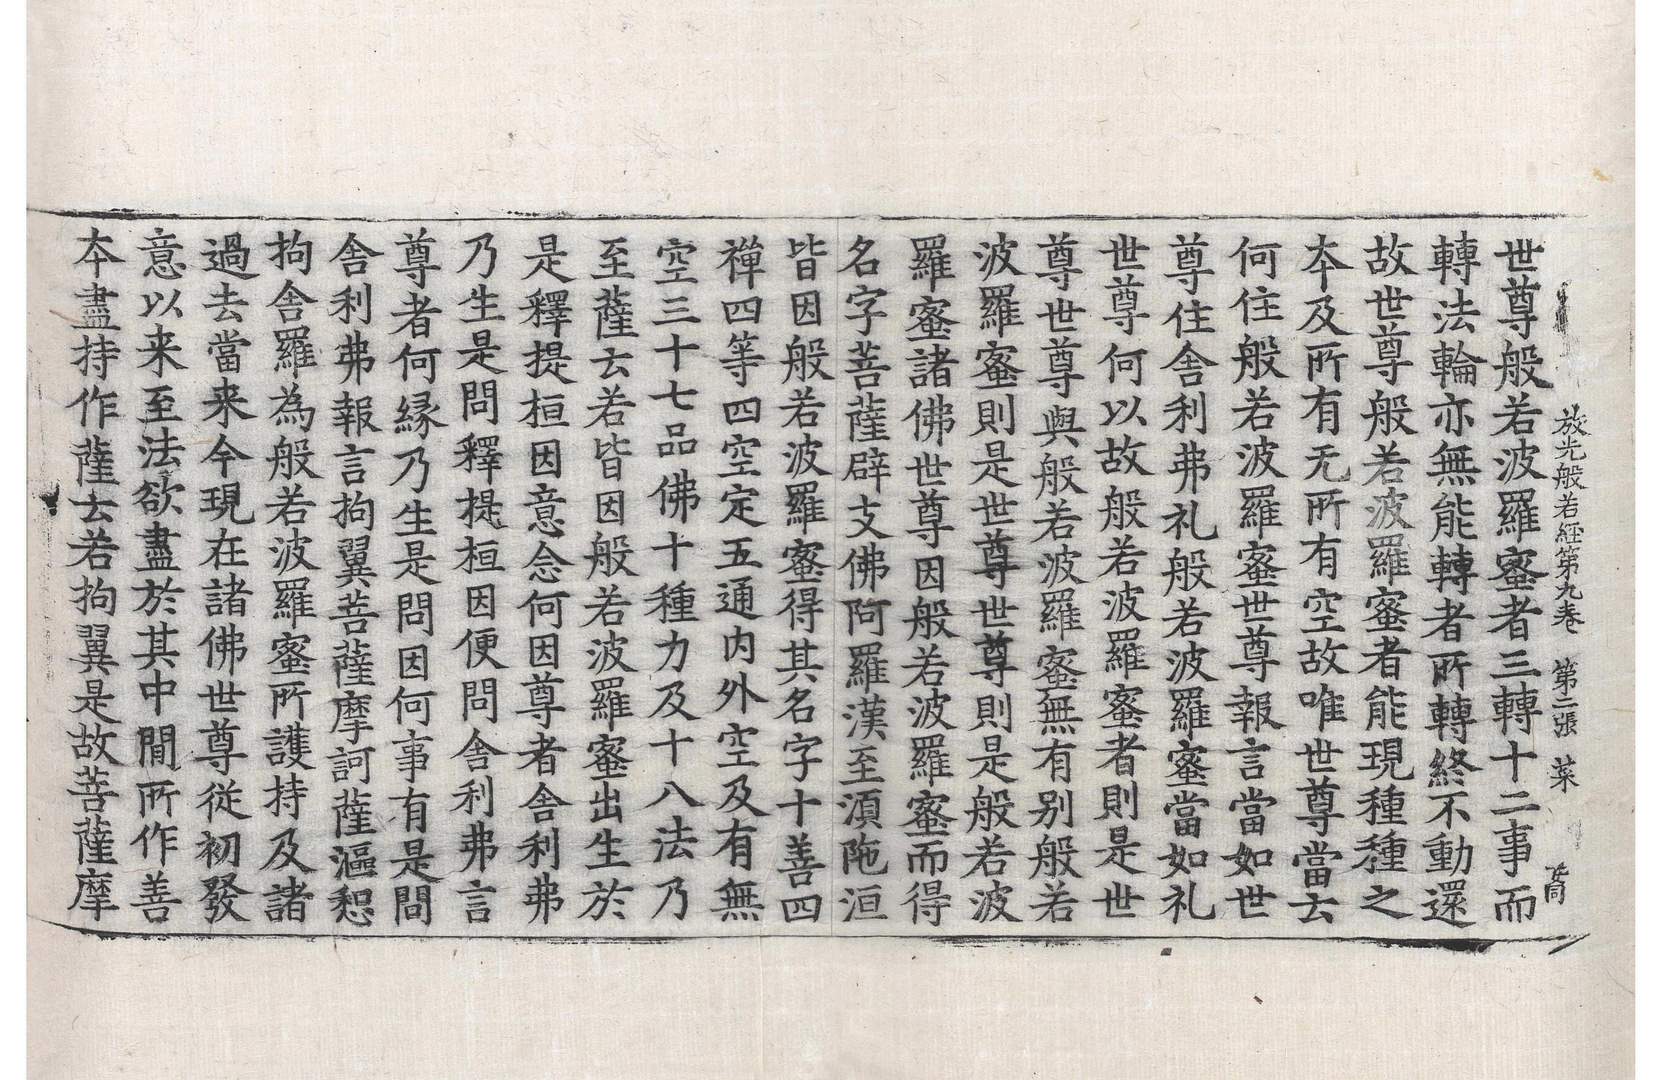 放光般若経第九巻 第二張 菜
世尊般若波羅蜜者三轉十二事而
轉法輪亦無能轉者所轉終不動還
故世尊般若波羅蜜者能現種種之
夲及所有无所有空故唯世尊當去
何住般若波羅蜜世尊報言當如世
尊住舎利弗礼般若波羅蜜當如礼
世尊何以故般若波羅蜜者則是世
尊世尊與般若波羅蜜無有别般若
波羅蜜則是世尊世尊則是般若波
羅蜜諸佛世尊因般若波羅蜜而得
名字菩薩辟支佛阿羅漢至湏陁洹
皆因般若波羅蜜得其名字十善四
禪四等四空定五通内外空及有無
空三十七品佛十種力及十八法乃
至薩云若皆因般若波羅蜜出生於
是釋提桓因意念何因尊者舎利弗
乃生是問釋提桓因便問舎利弗言
尊者何緣乃生是問因何事有是問
舎利弗報言拘翼菩薩摩訶薩漚惒
拘舎羅為般若波羅蜜所護持及諸
過去當来今現在諸佛世尊從初發
意以来至法欲盡於其中間所作善
夲盡持作薩云若拘翼是故菩薩摩